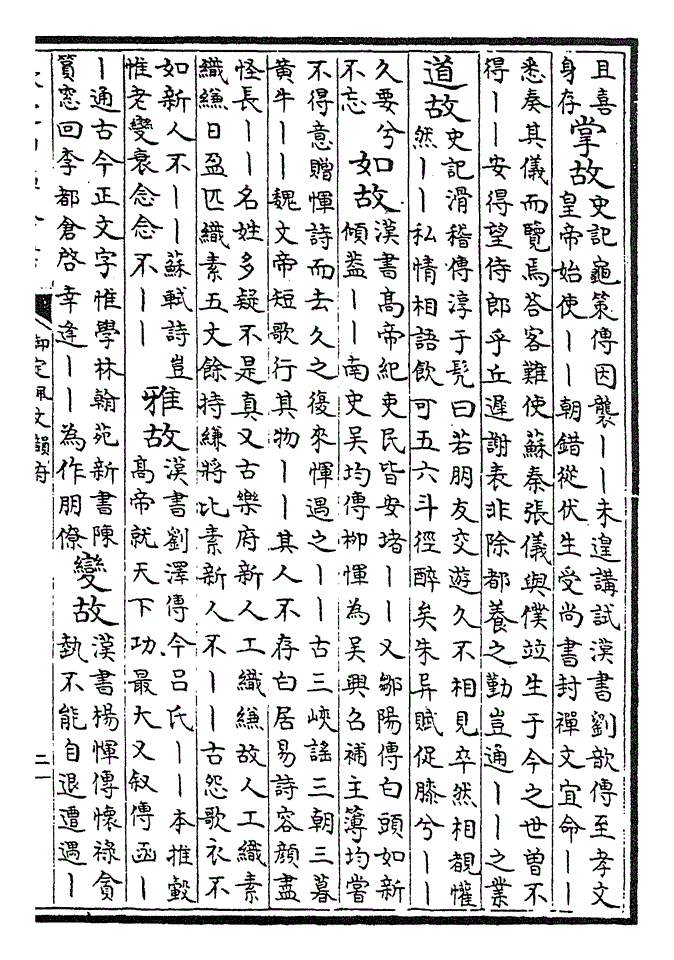 且喜
身存
掌故
史記龜策傳因襲丨丨未遑講試漢書劉歆傳至孝文
皇帝始使丨丨朝錯從伏生受尚書封禪文宜命丨丨
悉奏其儀而覽焉答客難使蘇秦張儀與僕竝生于今之世曽不
得丨丨安得望侍郎乎丘遲謝表非除都養之勤豈通丨丨之業
道故
史記滑稽傳淳于髡曰若朋友交遊久不相見卒然相覩懽
然丨丨私情相語飲可五六斗徑醉矣朱异賦促膝兮丨丨
久要兮
不忘
如故
漢書髙帝紀吏民皆安堵丨丨又鄒陽傳白頭如新
傾葢丨丨南史吴均傳柳惲為吴興召補主薄均嘗
不得意贈惲詩而去久之復來惲遇之丨丨古三峽謡三朝三暮
黄牛丨丨魏文帝短歌行其物丨丨其人不存白居易詩容顔盡
怪長丨丨名姓多疑不是真又古樂府新人工織縑故人工織素
織縑日盈匹織素五文餘持縑將比素新人不丨丨古怨歌衣不
如新人不丨丨蘇軾詩豈
惟老變衰念念不丨丨
雅故
漢書劉澤傳今吕氏丨丨本推轂
髙帝就天下功最大又叙傳函丨
丨通古今正文字惟學林翰苑新書陳
篔窓回李都倉啓幸逢丨丨為作朋僚
變故
漢書楊惲傳懷禄貪
埶不能自退遭遇丨
御定佩文韻府
二一